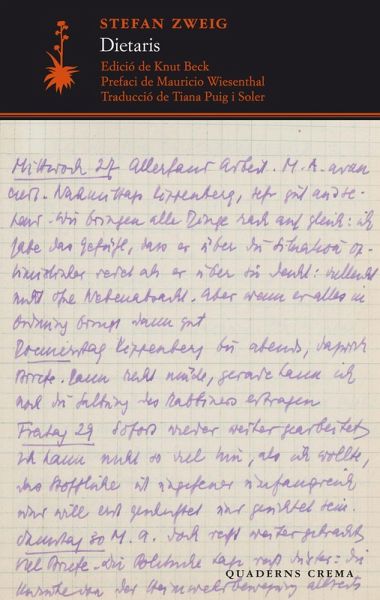 STEFAN ZWEIG
Dietaris
Edició de Knut Beck
Prefaci de Mauricio Wiesenthal
Traducció de Tiana Puig i Soler
Mittwoch 27 Allerhand Arbeit. M. A. avan
ciert. Nachmittags Kippenberg, sehr gut
wir bringen alle Dinge rasch auf gleich: ich
habe das Gefühl, dass er über die Situation op-
timistischer redet als er über sie denkt: vielleicht
nicht ohne Nebenabsicht. Aber wenn er alles in
Ordnung bringt dann gut
Donnerstag Kippenberg bis abends, dazwischen
Briefe. Dann recht müde, gerade kann ich
noch die des Rabbiners ertragen
Freitag 29 Sofort wieder weiter gearbeitet
ich kann nicht so viel tun, als ich wollte,
das Stoffliche ist ungeheuer umfangreich
und will erst und gesichtet sein.
Samstag 30 M. A. doch recht weiter gebracht
viel Briefe. Die Politische Lage recht düster: die
von der Heimwehrbewegung
QUADERNS CREMA